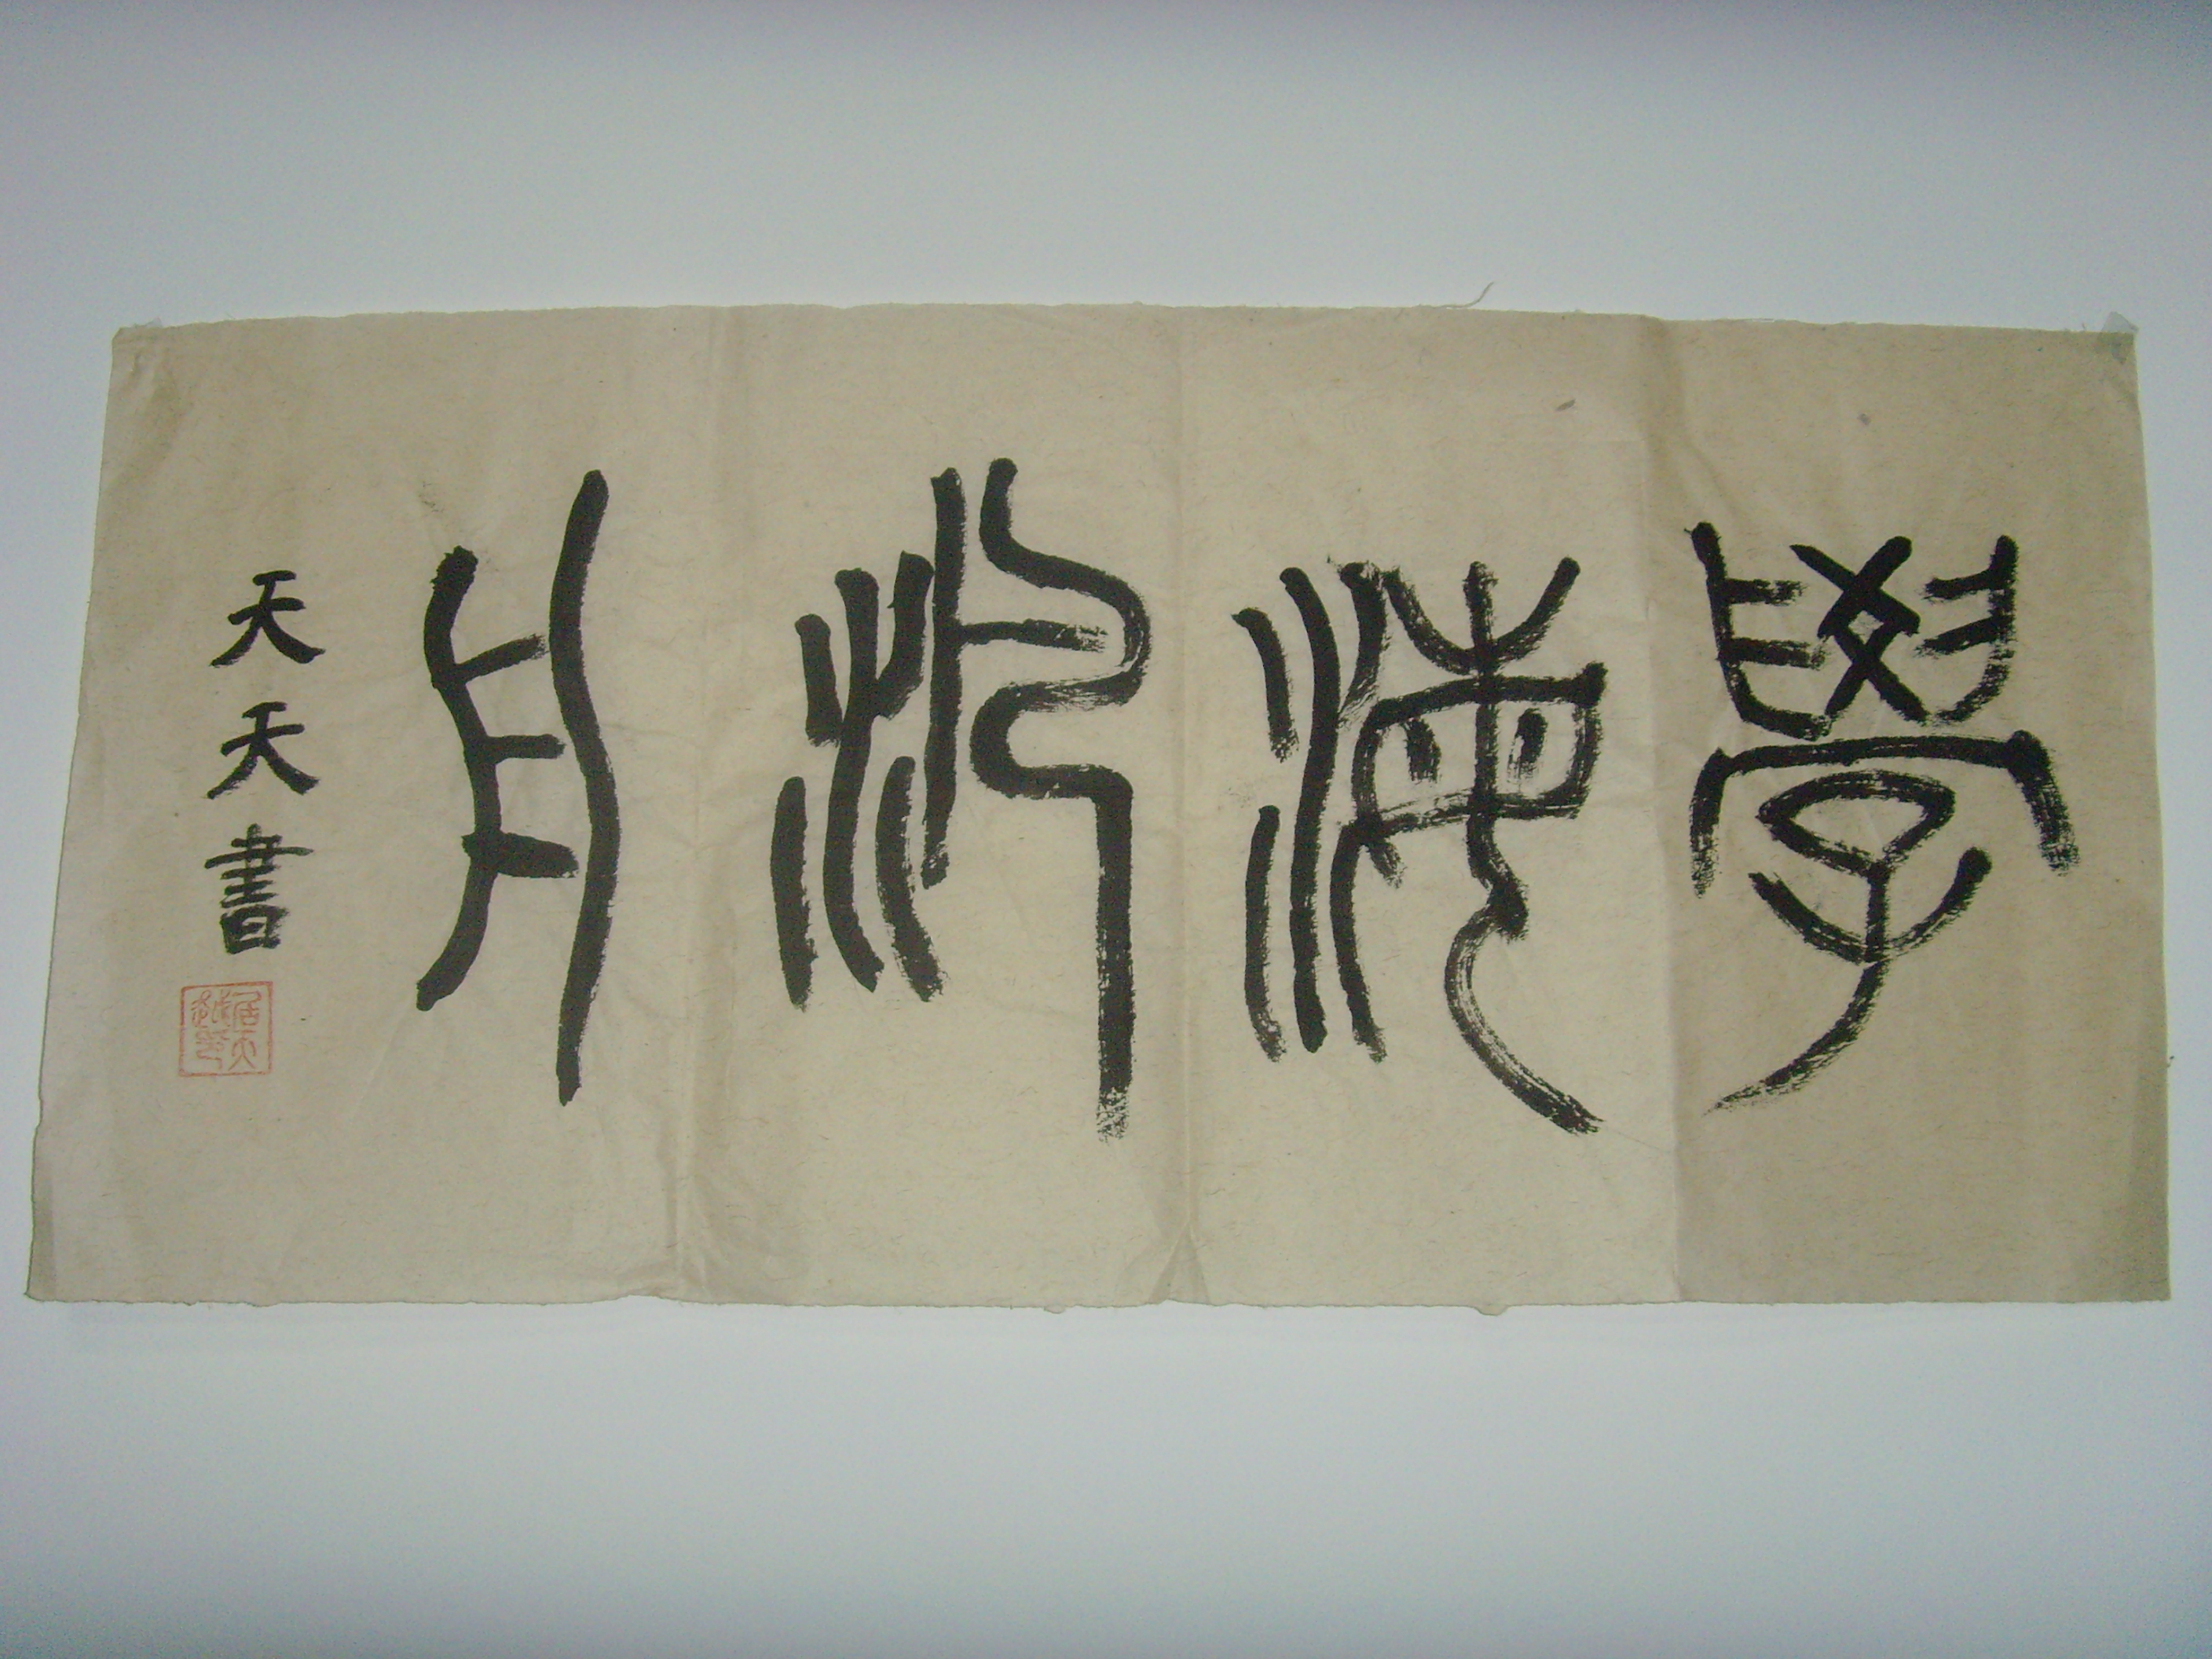 學海汎舟
天天書